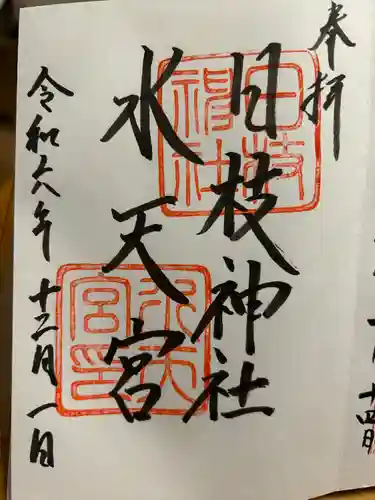 奉拝
日枝神社
日枝神社
水天宮
水天宮印
令和六年 十二月一日
十四日